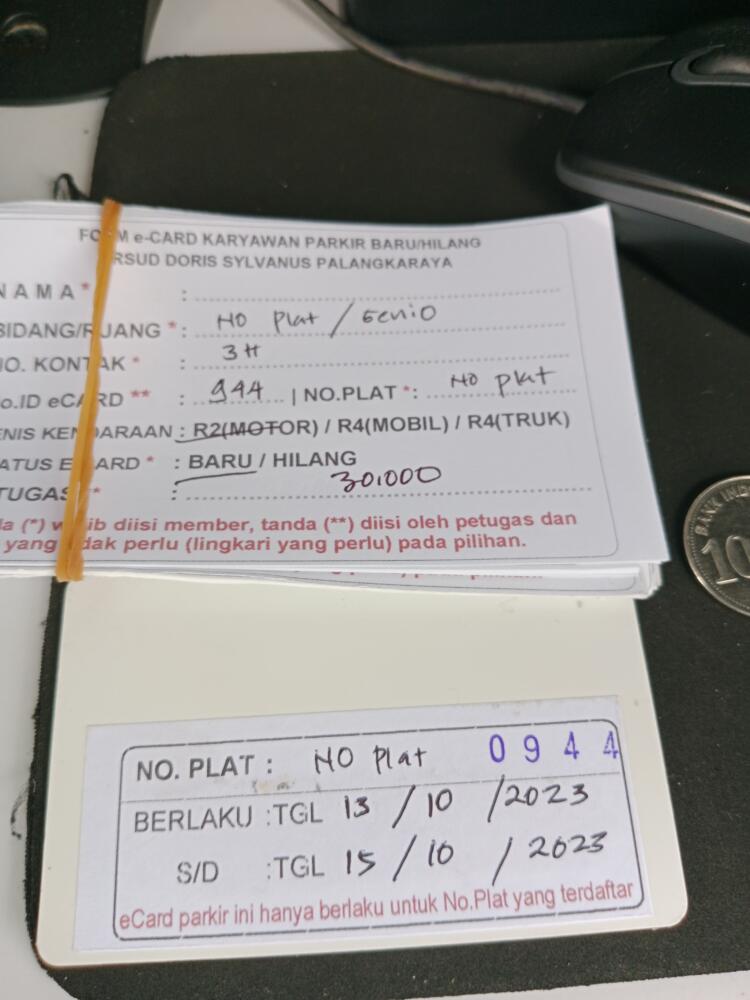 FORM e-CARD KARYAWAN PARKIR BARU/HILANG
RSUD DORIS SYLVANUS PALANGKARAYA
NAMA* :
BIDANG/RUANG *: NO Plat / Genio
NO. KONTAK * : 3H
No.ID eCARD ** : 944 | NO.PLAT *: NO plat
JENIS KENDARAAN : R2(MOTOR) / R4(MOBIL) / R4(TRUK)
STATUS ECARD * : BARU / HILANG
PETUGAS ** : 30.000
da (*) wajib diisi member, tanda (**) diisi oleh petugas dan
yang tidak perlu (lingkari yang perlu) pada pilihan.
NO. PLAT : NO Plat 0944
BERLAKU :TGL 13 / 10 / 2023
S/D :TGL 15 / 10 / 2023
eCard parkir ini hanya berlaku untuk No.Plat yang terdaftar
BANK IND
10